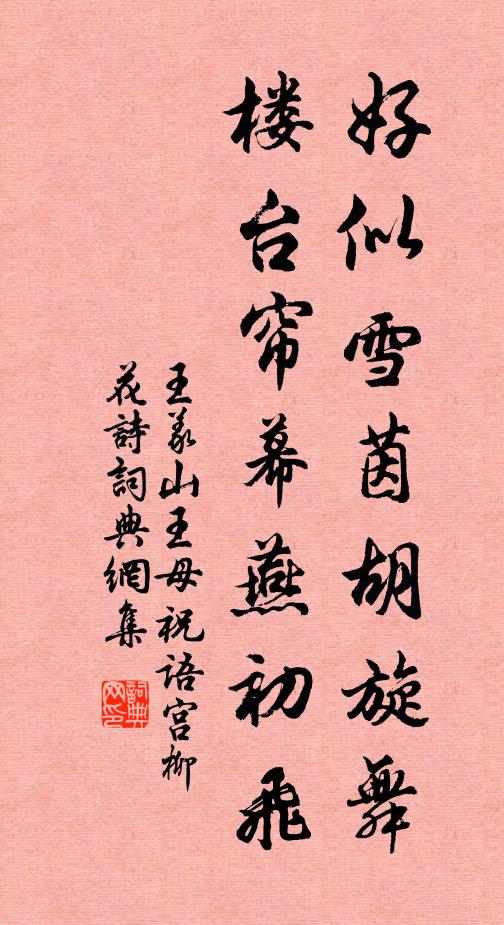 好似雪茵胡旋舞
楼台帘幕燕初飛
王义山王母祝语宫柳
花詩詞典網集
詞典
网印